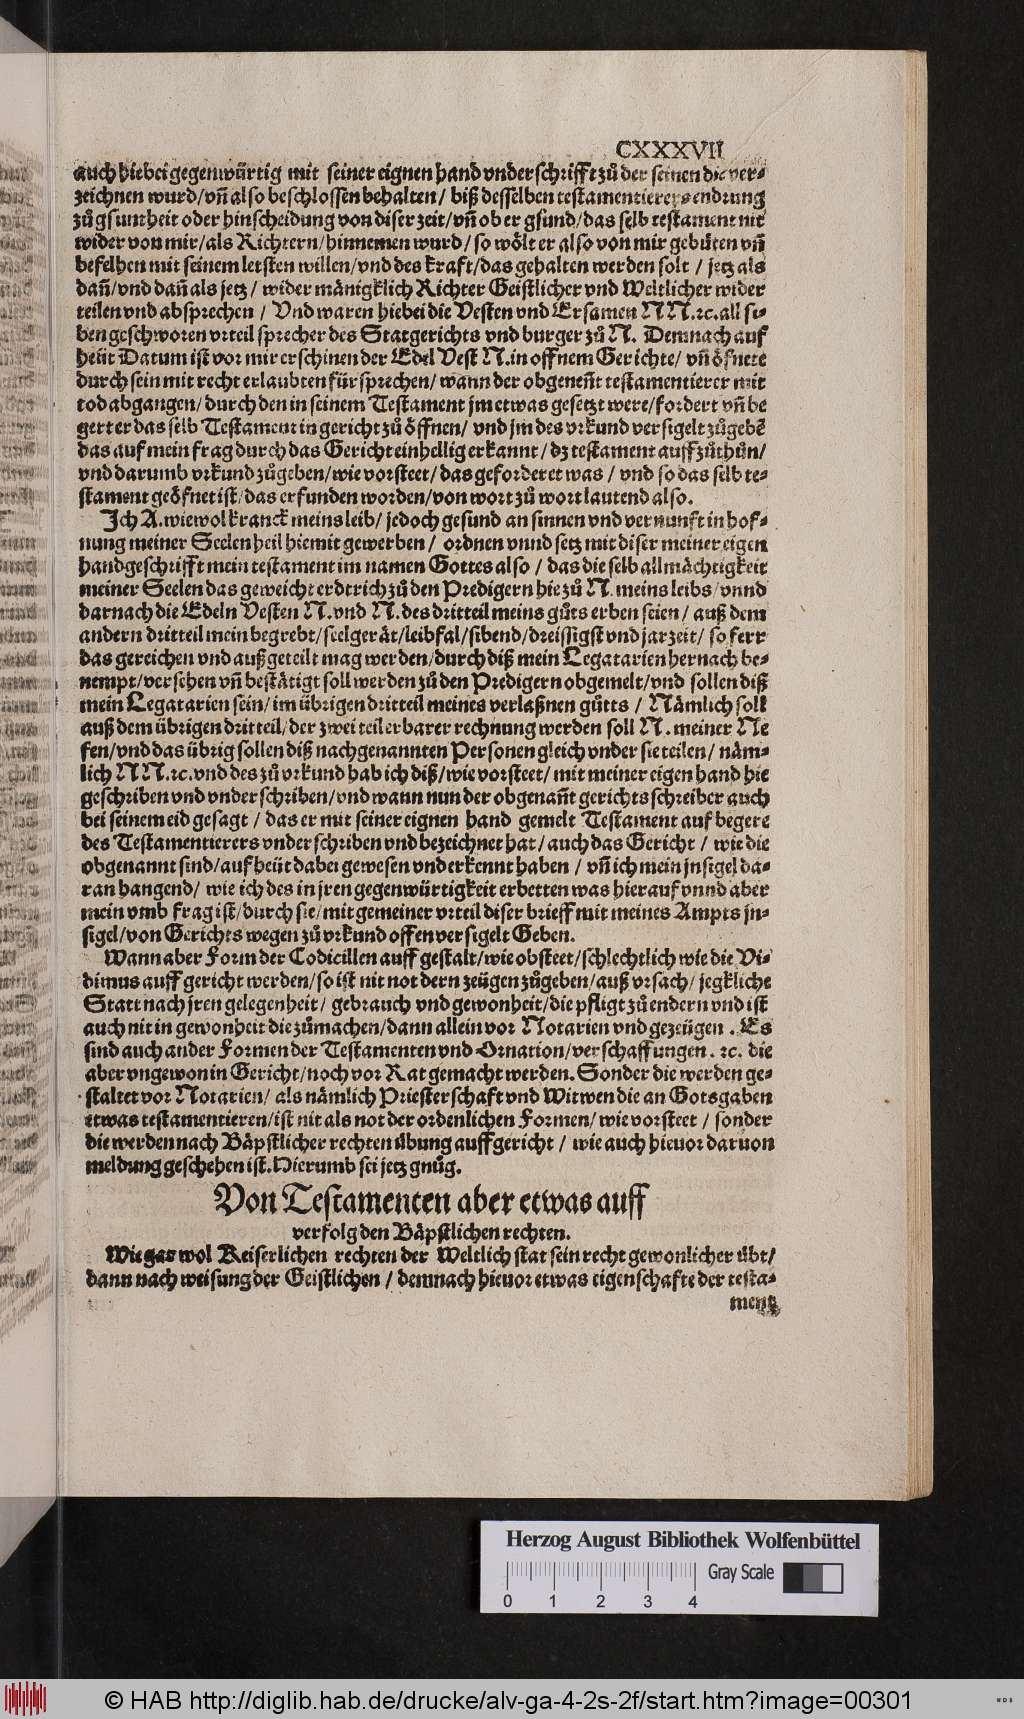 CXXXVII
auch hiebei gegenwürtig mit seiner eignen hand vnderschrifft zů der seinen die ver-
zeichnen wurd/ vñ also beschlossen behalten/ biß desselben testamentierers endrung
zů gsuntheit oder hinscheidung von diser zeit/ vñ ob er gsund/ das selb testament nit
wider von mir/ als Richtern/ hinnemen wurd/ so wölt er also von mir gebüten vñ
befelhen mit seinem letsten willen/ vnd des kraft/ das gehalten werden solt / jetz als
dañ/ vnd dañ als jetz / wider mänigklich Richter Geistlicher vnd Weltlicher wider
teilen vnd absprechen / Vnd waren hiebei die Vesten vnd Ersamen N N. ꝛc. all si-
ben geschworen vrteil sprecher des Statgerichts vnd burger zů N. Demnach auf
heüt Datum ist vor mir erschinen der Edel Vest N. in offnem Gerichte/ vñ öfnete
durch sein mit recht erlaubten fürsprechen/ wann der obgeneñt testamentierer mit
tod abgangen/ durch den in seinem Testament jm etwas gesetzt were/ fordert vñ be
gert er das selb Testament in gericht zů öffnen/ vnd jm des vrkund versigelt zůgebẽ
das auf mein frag durch das Gericht einhellig erkannt/ dz testament auffzůthůn/
vnd darumb vrkund zůgeben/ wie vorsteet/ das geforderet was / vnd so das selb te-
stament geöfnet ist/ das erfunden worden/ von wort zů wort lautend also.
Ich A. wiewol kranck meins leib/ jedoch gesund an sinnen vnd vernunft in hof-
nung meiner Seelen heil hiemit gewerben / ordnen vnnd setz mit diser meiner eigen
handgeschrifft mein testament im namen Gottes also / das die selb allmächtigkeit
meiner Seelen das geweicht erdtrich zů den Predigern hie zů N. meins leibs/ vnnd
darnach die Edeln Vesten N. vnd N. des dritteil meins gůts erben seien / auß dem
andern dritteil mein begrebt/ seelgerät/ leibfal/ sibend/ dreissigst vnd jarzeit/ so ferr
das gereichen vnd außgeteilt mag werden/ durch diß mein Legatarien hernach be-
nempt/ versehen vñ bestätigt soll werden zů den Predigern obgemelt/ vnd sollen diß
mein Legatarien sein/ im übrigen dritteil meines verlaßnen gůtts / Nämlich soll
auß dem übrigen dritteil/ der zwei teil erbarer rechnung werden soll N. meiner Ne
fen/ vnd das übrig sollen diß nachgenannten Personen gleich vnder sie teilen/ näm-
lich N N. ꝛc. vnd des zů vrkund hab ich diß/ wie vorsteet/ mit meiner eigen hand hie
geschriben vnd vnderschriben/ vnd wann nun der obgenañt gerichtsschreiber auch
bei seinem eid gesagt / das er mit seiner eignen hand gemelt Testament auf begere
des Testamentierers vnderschriben vnd bezeichnet hat/ auch das Gericht / wie die
obgenannt sind/ auf heüt dabei gewesen vnd erkennt haben / vñ ich mein jnsigel da-
ran hangend/ wie ich des in jren gegenwürtigkeit erbetten was hierauf vnnd aber
mein vmb frag ist/ durch sie/ mit gemeiner vrteil diser brieff mit meines Ampts jn-
sigel/ von Gerichts wegen zů vrkund offen versigelt Geben.
Wann aber Form der Codicillen auffgestalt/ wie obsteet/ schlechtlich wie die Vi-
dimus auffgericht werden/ so ist nit not dern zeügen zůgeben/ auß vrsach/ jegkliche
Statt nach jren gelegenheit/ gebrauch vnd gewonheit/ die pfligt zů endern vnd ist
auch nit in gewonheit die zůmachen/ dann allein vor Notarien vnd gezeügen. Es
sind auch ander Formen der Testamenten vnd Ornation/ verschaffungen. ꝛc. die
aber vngewon in Gericht/ noch vor Rat gemacht werden. Sonder die werden ge-
staltet vor Notarien/ als nämlich Priesterschaft vnd Witwen die an Gotsgaben
etwas testamentieren/ ist nit als not der ordenlichen Formen/ wie vorsteet / sonder
die werden nach Bäpstlicher rechten übung auffgericht / wie auch hieuor daruon
meldung geschehen ist. Hierumb sei jetz gnůg.
Von Testamenten aber etwas auff
verfolg den Bäpstlichen rechten.
Wie gar wol Keiserlichen rechten der Weltlich stat sein recht gewonlicher übt/
dann nach weisung der Geistlichen / demnach hieuor etwas eigenschafte der testa-
ment
Herzog August Bibliothek Wolfenbüttel
Gray Scale
0 1 2 3 4
© HAB http://diglib.hab.de/drucke/alv-ga-4-2s-2f/start.htm?image=00301